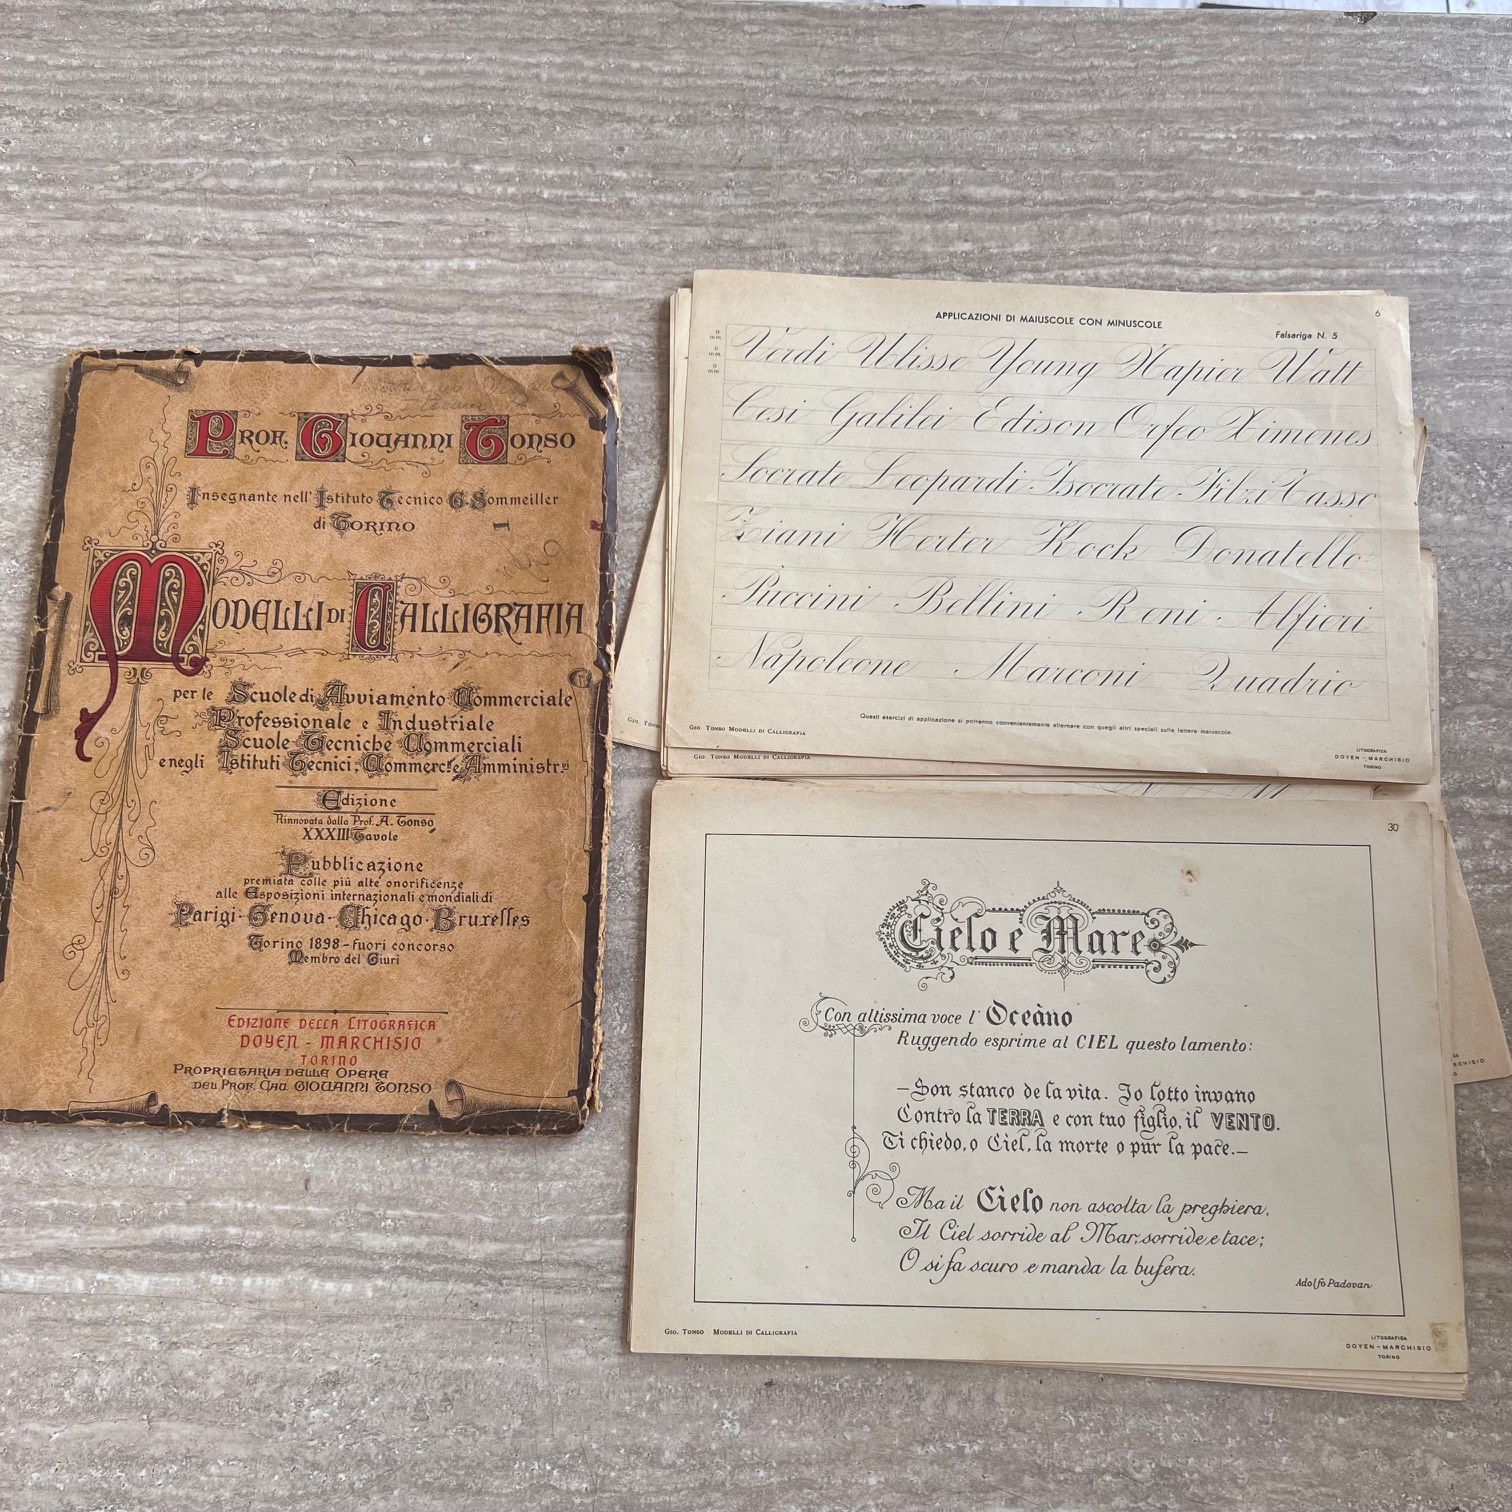 Prof. Giovanni Tonso
Insegnante nell'Istituto Tecnico G. Sommeiller
di Torino
Modelli di Calligrafia
per le Scuole di Avviamento Commerciale
Professionale e Industriale
Scuole Tecniche Commerciali
e negli Istituti Tecnici; Commerc. e Amministr.vi
Edizione
Rinnovata dalla Prof. A. Tonso
XXXIII Tavole
Pubblicazione
premiata colle più alte onorificenze
alle Esposizioni internazionali e mondiali di
Parigi - Genova - Chicago - Bruxelles
Torino 1898 - fuori concorso
Membro del Giuri
Edizione della Litografica
DOYEN - MARCHISIO
TORINO
Proprietaria delle Opere
del Prof. Cav. Giovanni Tonso
6
APPLICAZIONI DI MAIUSCOLE CON MINUSCOLE
Falsariga N. 5
Verdi Ulisse Young Napier Watt
Cesi Galilei Edison Orfeo Ximenes
Socrate Leopardi Isocrate Filzi Tasso
Ziani Herter Kock Donatello
Puccini Bellini Reni Alfieri
Napoleone Marconi Quadrio
Questi esercizi di applicazione si potranno convenientemente alternare con quegli altri speciali sulle lettere maiuscole.
Gio. Tonso Modelli di Calligrafia
LITOGRAFICA
DOYEN - MARCHISIO
TORINO
Gio. Tonso Modelli di Calligrafia
30
Cielo e Mare
Con altissima voce l' Oceàno
Ruggendo esprime al CIEL questo lamento:
—Son stanco de la vita. Io lotto invano
Contro la TERRA e con tuo figlio, il VENTO.
Ti chiedo, o Ciel, la morte o pur la pace.—
Ma il Cielo non ascolta la preghiera.
Il Ciel sorride al Mar; sorride e tace;
O si fa scuro e manda la bufera.
Adolfo Padovan
Gio. Tonso Modelli di Calligrafia
LITOGRAFICA
DOYEN - MARCHISIO
TORINO